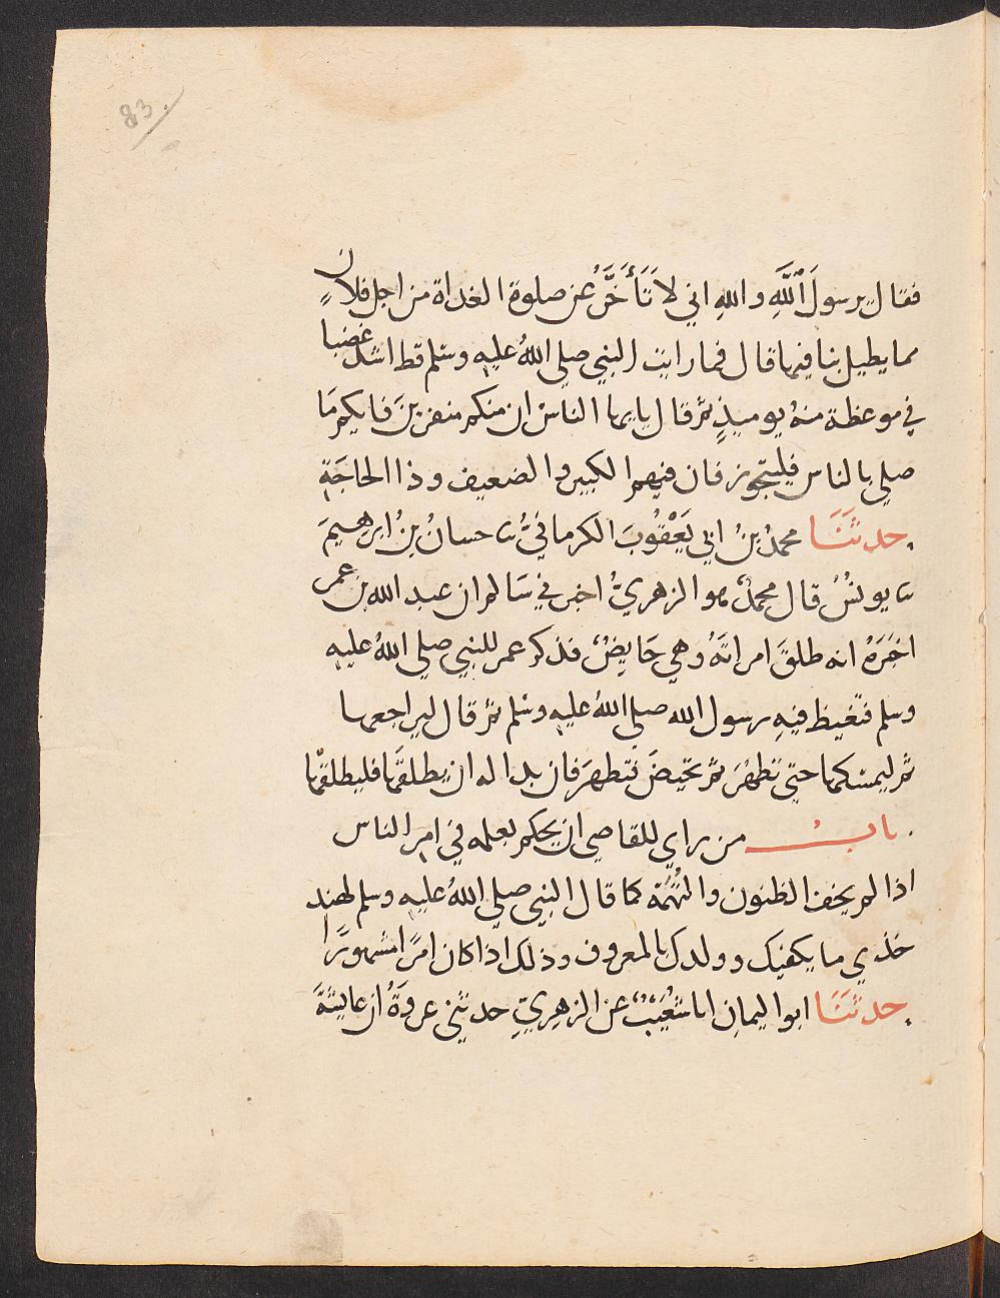 83
فقال يرسولَ ٱللَّهِ والله اني لاَتَأَخَّرُ عن صلوة الغداة من اجل فلانٍ
مما يطيل بنا فيها قال فما رايت النبي صلي اللهُ عليه وسلم قط اشد غضبا
في موعظة منهُ يوميذٍ ثم قال يايها الناس ان منكم منفرينَ فايكم مَا
صلي بالناس فليتجوز فان فيهم الكبير والضعيف وذا الحاجَةِ
حدثَنَا محمدُ بنُ ابي يَعْقُوبَ الكرمانيُّ ثنا حسانُ بنُ ابرهيمَ
ثنا يونسُ قال محمدٌ هو الزهريُّ اخبرني سَالم ان عبد الله بن عمر
اخبَرَهُ انه طلقَ امراتَهُ وهي حَايضٌ فذكر عمر للنبي صلي اللهُ عليه
وسلم فتَغيظ فيهِ رسول الله صلي اللهُ عليه وسَلم ثم قال ليراجعها
ثم ليمسكها حتي تطهُرَ ثم تحيضَ فتطهرَ فان بدا له ان يطلقَها فليطلقْها
بابُ من راي للقاضي ان يحكم بعلمه في امر الناس
اذا لم يخف الظنون والتُّهَمَة كما قال النبي صلي اللهُ عليه وسلم لهند
خذي ما يكفيك وولدك بالمعروف وذلك اذا كان امرًا مشهورًا
حدثَنَا ابو اليمانِ انا شُعَيْبٌ عن الزهريِّ حدثني عروَةُ ان عايشةَ